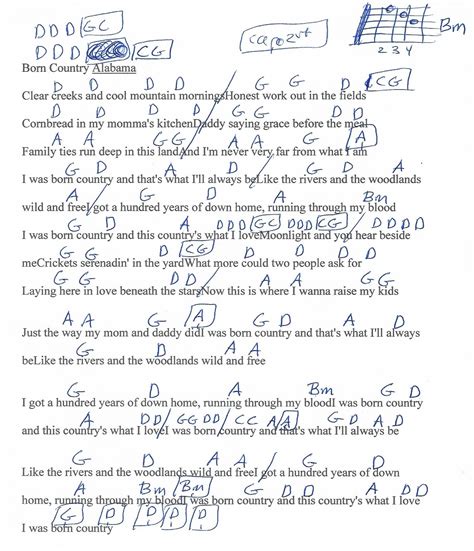 D D D G C
D D D C G
capo 2
Bm
2 3 4
Born Country Alabama
D D D D G G D D C G
Clear creeks and cool mountain morningsHonest work out in the fields
D D G G D D
Cornbread in my momma's kitchenDaddy saying grace before the meal
A A G G A A G A
Family ties run deep in this landAnd I'm never very far from what I am
G D A G D A
I was born country and that's what I'll always beLike the rivers and the woodlands
A G D A Bm
wild and freeI got a hundred years of down home, running through my blood
G D A D D D G C D D D C G D D D D
I was born country and this country's what I loveMoonlight and you hear beside
D D C G D D G G
meCrickets serenadin' in the yardWhat more could two people ask for
G G D D A A G G
Laying here in love beneath the starsNow this is where I wanna raise my kids
A A G A G D A
Just the way my mom and daddy didI was born country and that's what I'll always
G D A A
beLike the rivers and the woodlands wild and free
G D A Bm G D
I got a hundred years of down home, running through my bloodI was born country
A D D G G D D C C A A G D A D
and this country's what I loveI was born country and that's what I'll always be
G D A A G D
Like the rivers and the woodlands wild and freeI got a hundred years of down
A Bm Bm G D D A A
home, running through my bloodI was born country and this country's what I love
G D D D
I was born country